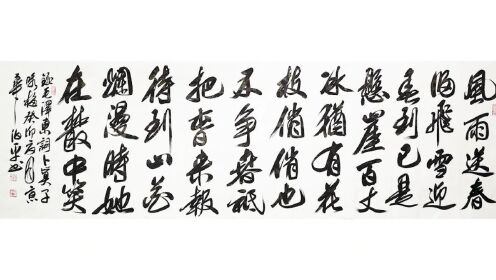 風雨送春
歸飛雪迎
春到已是
懸崖百丈
冰猶有花
枝俏俏也
不争春祇
把春来報
待到山花
爛漫時她
在叢中笑
錄毛澤東詞卜算子
咏梅癸卯月京
華